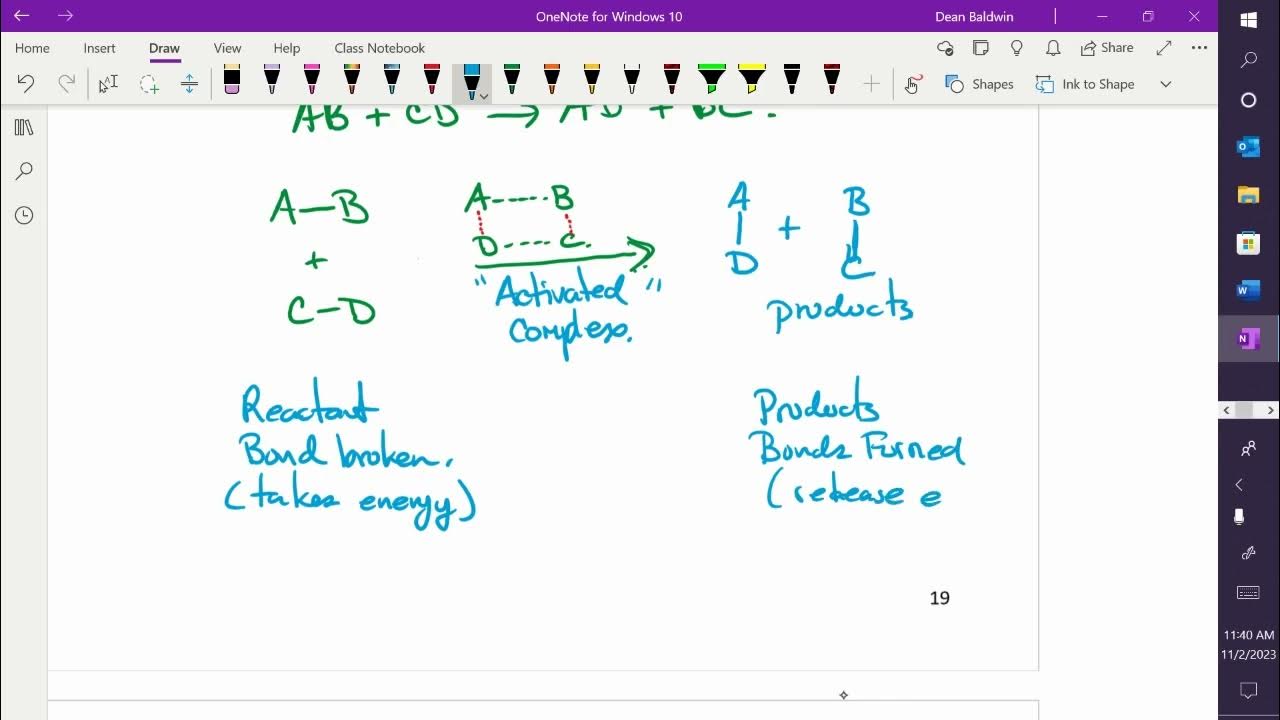 OneNote for Windows 10
Dean Baldwin
Home Insert Draw View Help Class Notebook
Share
Shapes
Ink to Shape
AB + CD → AD + BC.
A—B
+
C—D
A-----B
D----C.
"Activated"
Complex.
A
|
D
+
B
|
C
products
Reactant
Bond broken.
(takes energy)
Products
Bonds Formed
(release e
19
11:40 AM
11/2/2023